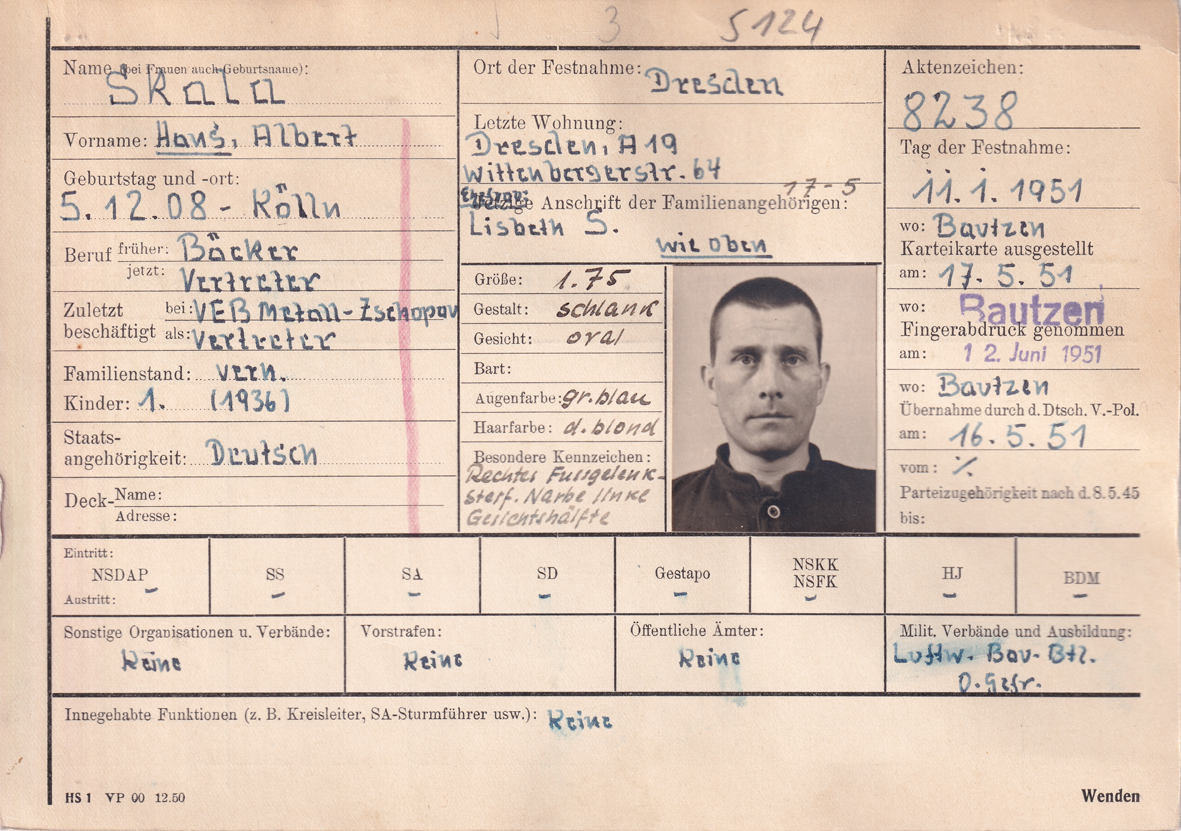 3 5124
Name (bei Frauen auch Geburtsname):
Skala
Vorname: Hans, Albert
Geburtstag und -ort:
5.12.08 - Kölln
Beruf früher: Bäcker
jetzt: Vertreter
Zuletzt beschäftigt bei: VEB Metall-Zschopau
als: Vertreter
Familienstand: verh.
Kinder: 1. (1936)
Staats-
angehörigkeit: Deutsch
Deck-Name:
Adresse:
Ort der Festnahme: Dresden
Letzte Wohnung:
Dresden, A 19
Wittenbergerstr. 64
17-5
Ehefrau:
Jetzige Anschrift der Familienangehörigen:
Lisbeth S.
wie oben
Größe: 1.75
Gestalt: schlank
Gesicht: oval
Bart:
Augenfarbe: gr.blau
Haarfarbe: d.blond
Besondere Kennzeichen:
Rechtes Fussgelenk-
steif. Narbe linke
Gesichtshälfte
Aktenzeichen:
8238
Tag der Festnahme:
11.1.1951
wo: Bautzen
Karteikarte ausgestellt
am: 17.5.51
wo: Bautzen
Fingerabdruck genommen
am: 12. Juni 1951
wo: Bautzen
Übernahme durch d. Dtsch. V.-Pol.
am: 16.5.51
vom: ·/.
Parteizugehörigkeit nach d. 8.5.45
bis:
Eintritt:
NSDAP -
Austritt:
SS -
SA -
SD -
Gestapo -
NSKK
NSFK -
HJ -
BDM -
Sonstige Organisationen u. Verbände:
Keine
Vorstrafen:
Keine
Öffentliche Ämter:
Keine
Milit. Verbände und Ausbildung:
Luftw. Bau-Btl.
O.Gefr.
Innegehabte Funktionen (z. B. Kreisleiter, SA-Sturmführer usw.): Keine
HS 1 VP 00 12.50
Wenden